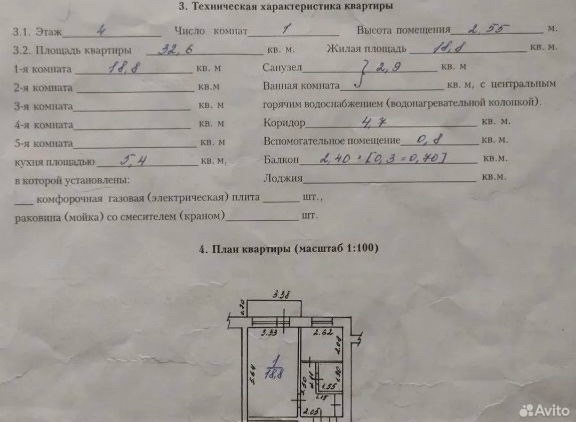 3. Техническая характеристика квартиры
3.1. Этаж 4 Число комнат 1 Высота помещения 2.55 м.
3.2. Площадь квартиры 32,6 кв. м. Жилая площадь 18,8 кв. м.
1-я комната 18,8 кв. м Санузел } 2,9 кв. м
2-я комната кв.м Ванная комната кв. м, с центральным
3-я комната кв. м горячим водоснабжением (водонагревательной колонкой).
4-я комната кв. м Коридор 4,7 кв. м.
5-я комната кв. м Вспомогательное помещение 0,8 кв. м.
кухня площадью 5,4 кв. м, Балкон 2,40 * [0,3 = 0,70] кв.м.
в которой установлены: Лоджия кв.м.
комфорочная газовая (электрическая) плита шт.,
раковина (мойка) со смесителем (краном) шт.
4. План квартиры (масштаб 1:100)
3.38
0.70
3.33 2.62
5.64 1 2.06
18,8
1.55
1.18
2.05
Avito